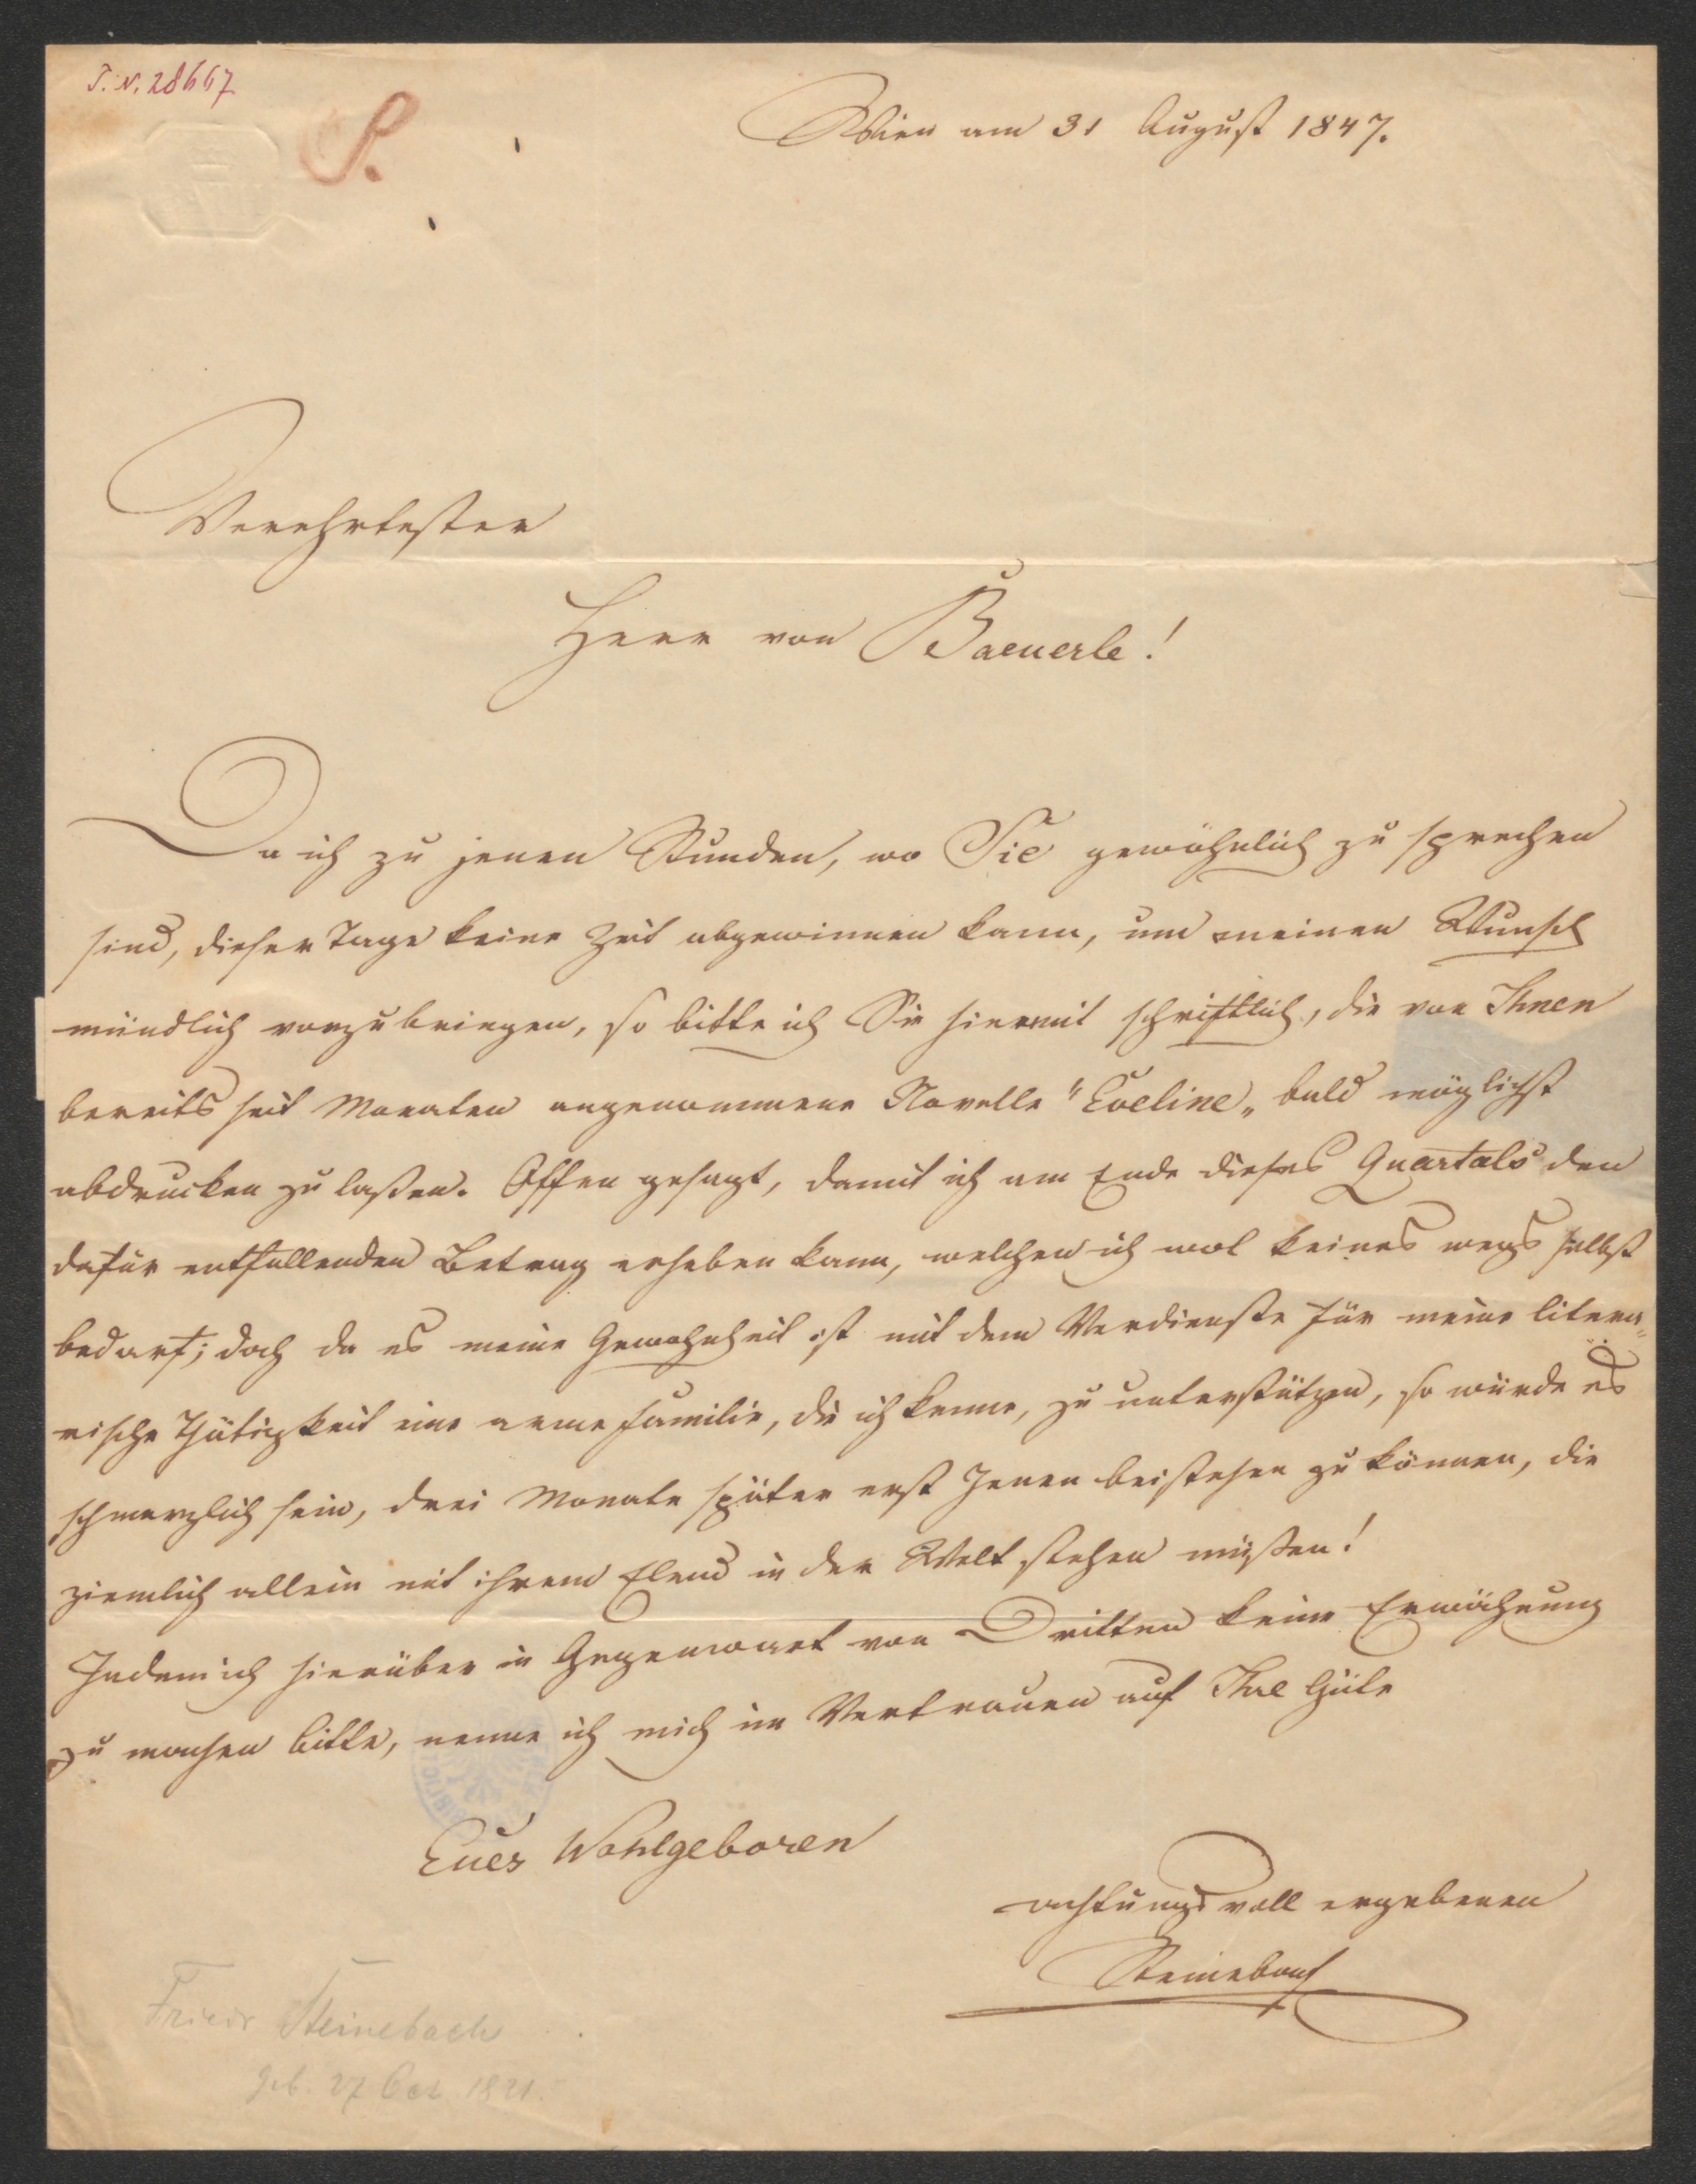 I. N. 28667
S.
Wien am 31 August 1847.
Verehrtester
Herr von Baeuerle!
Da ich zu jenen Stunden, wo Sie gewöhnlich zu sprechen
sind, dieser Tage keine Zeit abgewinnen kann, um meinen Wunsch
mündlich vorzubringen, so bitte ich Sie hiermit schriftlich, die von Ihnen
bereits seit Monaten angenommene Novelle "Eveline„ bald möglichst
abdrucken zu laßen. Offen gesagt, damit ich am Ende dieses Quartals den
dafür entfallenden Betrag erheben kann, welchen ich wol keines wegs selbst
bedarf; doch da es meine Gewohnheit ist mit dem Verdienste für meine litera„
rische Thätigkeit eine arme Familie, die ich kenne, zu unterstützen, so würde es
schmerzlich sein, drei Monate später erst Jenen beistehen zu können, die
ziemlich allein mit ihrem Elend in der Welt stehen müßen!
Indem ich hierüber in Gegenwart von Dritten keine Erwähnung
zu machen bitte, nenne ich mich im Vertrauen auf Ihre Güte
Euer Wohlgeboren
achtungsvoll ergebenen
Steinebach
Friedr Steinebach
geb. 27 Oct. 1821.